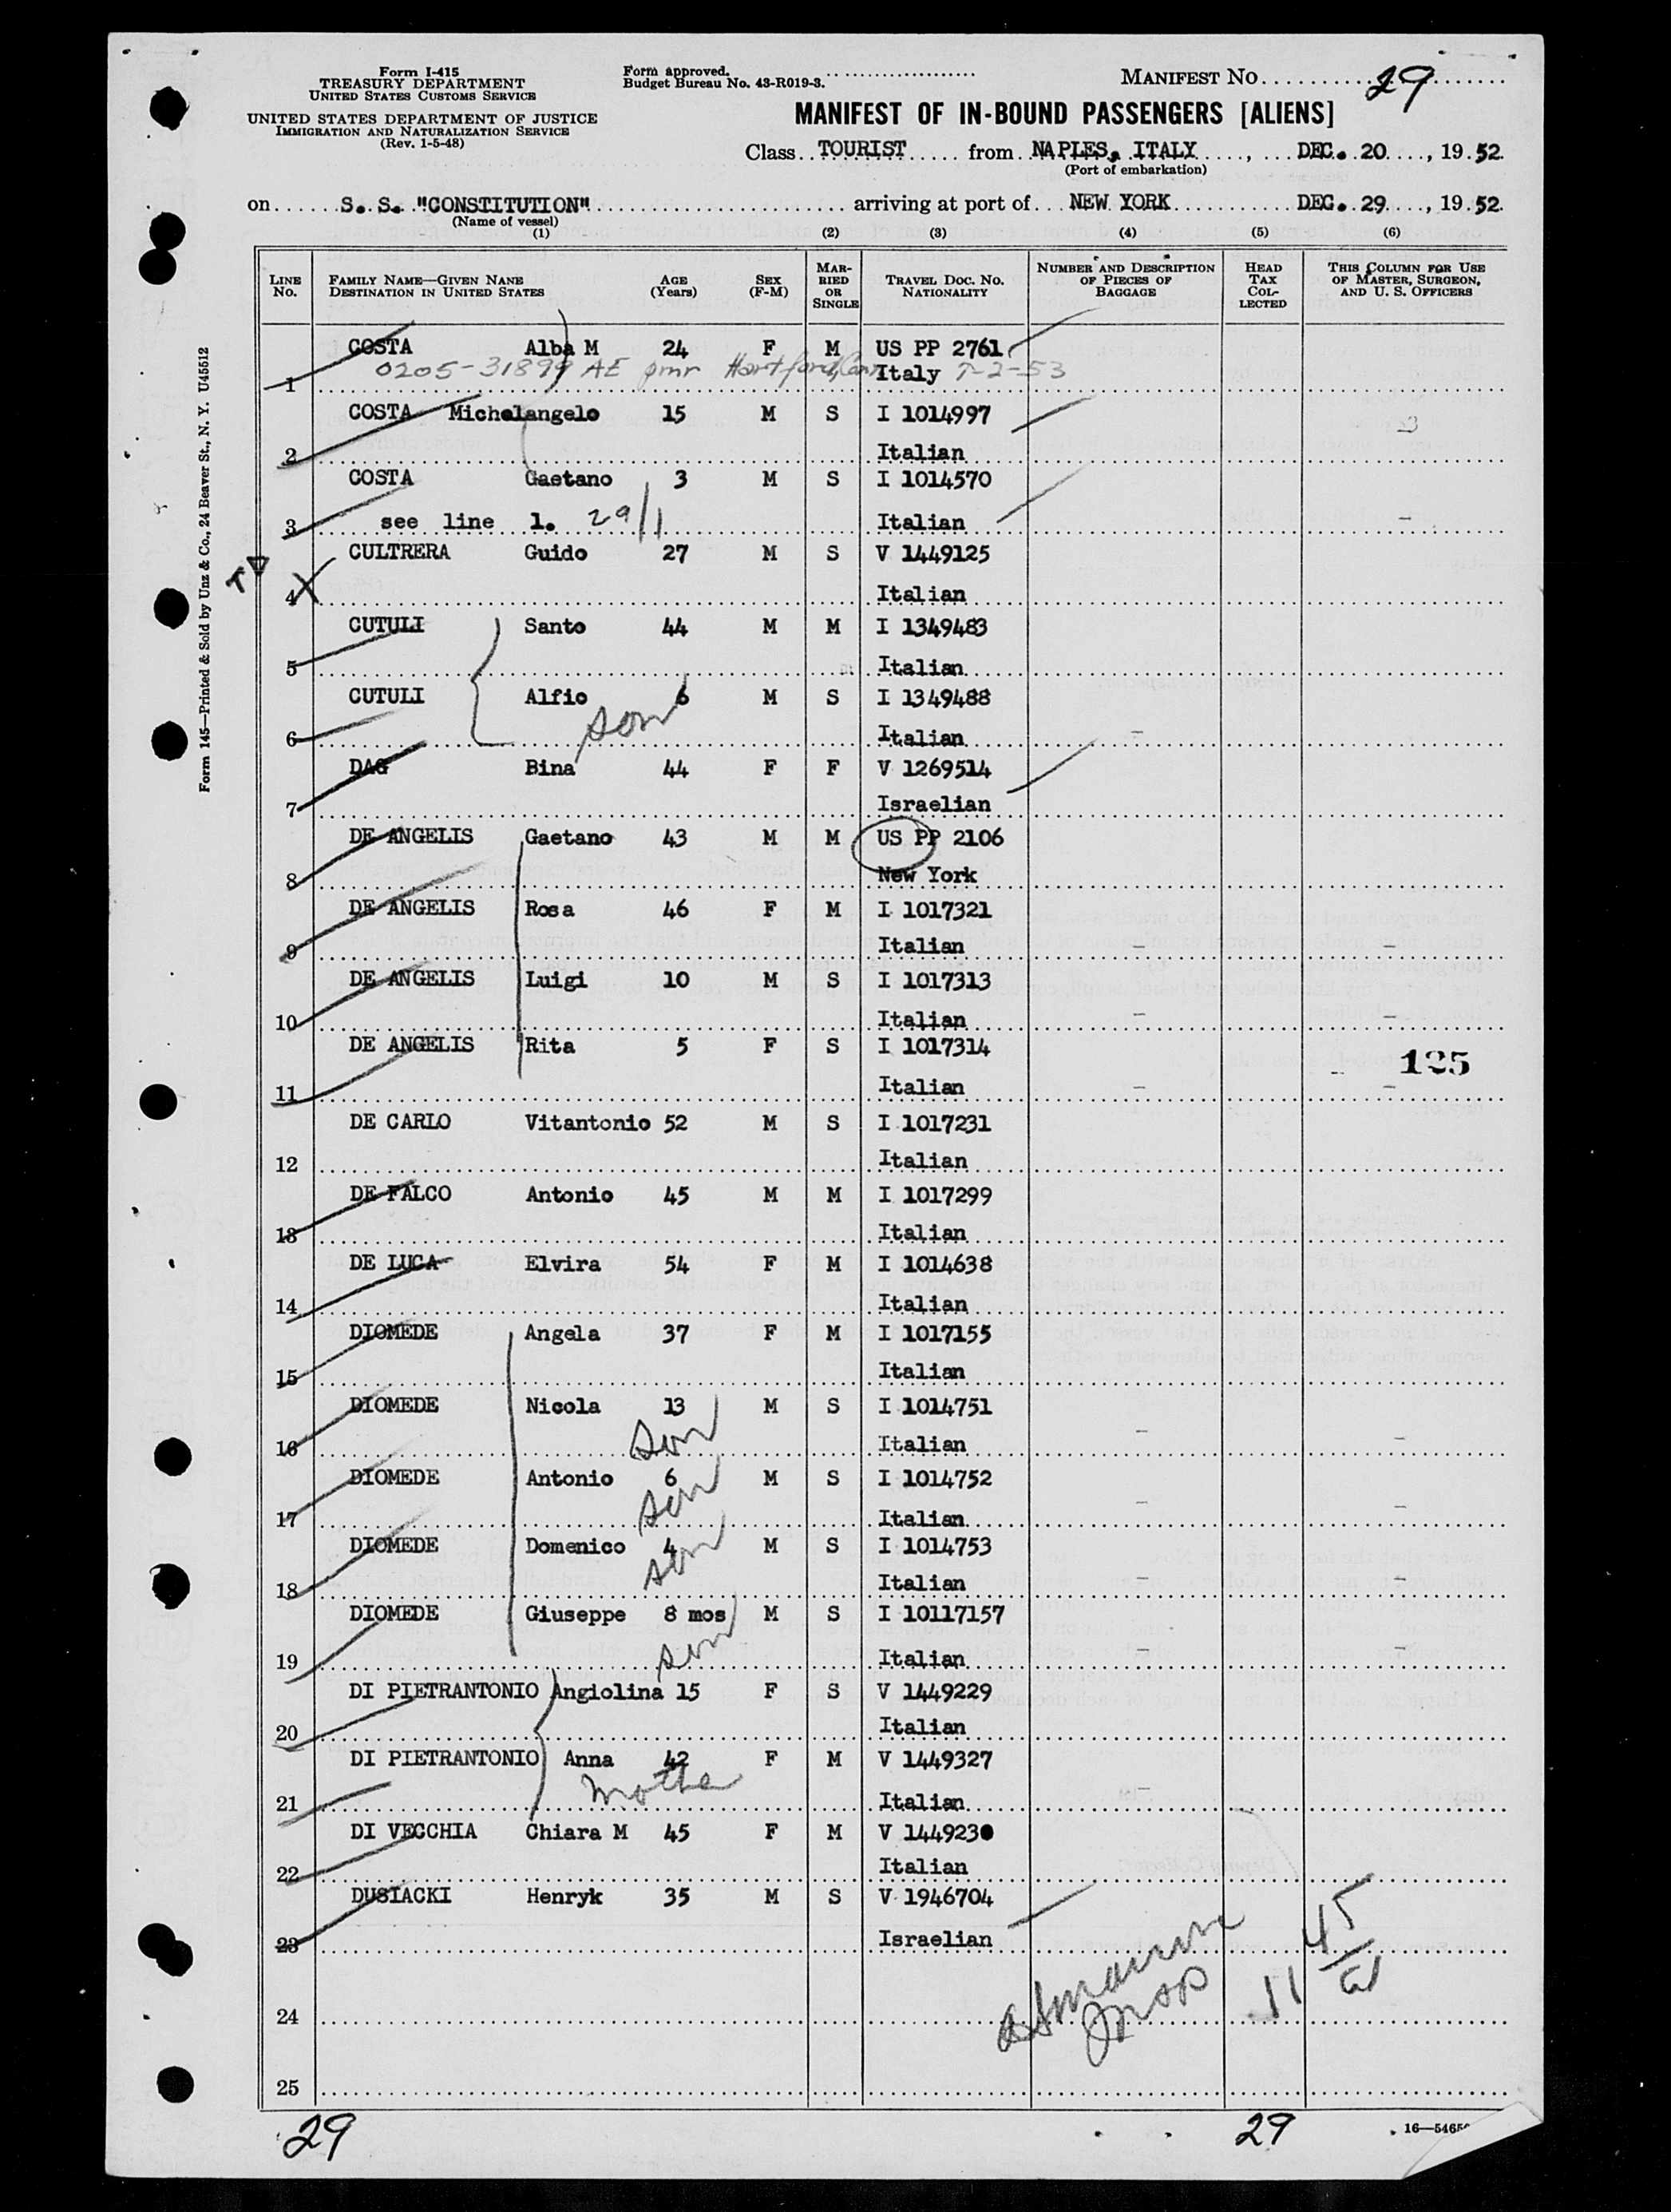 Form I-415
TREASURY DEPARTMENT
UNITED STATES CUSTOMS SERVICE
UNITED STATES DEPARTMENT OF JUSTICE
IMMIGRATION AND NATURALIZATION SERVICE
(Rev. 1-5-48)
Form approved.
Budget Bureau No. 43-R019-3.
MANIFEST No. 29
MANIFEST OF IN-BOUND PASSENGERS [ALIENS]
Class TOURIST from NAPLES, ITALY, DEC. 20, 1952
(Port of embarkation)
on S. S. "CONSTITUTION" arriving at port of NEW YORK DEC. 29, 1952
(Name of vessel)
(1) (2) (3) (4) (5) (6)
LINE No. FAMILY NAME—GIVEN NANE DESTINATION IN UNITED STATES AGE (Years) SEX (F-M) MARRIED OR SINGLE TRAVEL DOC. NO. NATIONALITY NUMBER AND DESCRIPTION OF PIECES OF BAGGAGE HEAD TAX COLLECTED THIS COLUMN FOR USE OF MASTER, SURGEON, AND U. S. OFFICERS
COSTA Alba M 24 F M US PP 2761
0205-31899 AE pmr Hartford, Conn Italy 7-2-53
1
COSTA Michelangelo 15 M S I 1014997
2 Italian
COSTA Gaetano 3 M S I 1014570
3 see line 1. 29/1 Italian
CULTRERA Guido 27 M S V 1449125
4 Italian
CUTULI Santo 44 M M I 1349483
5 Italian
CUTULI Alfio 6 M S I 1349488
6 son Italian
DAG Bina 44 F F V 1269514
7 Israelian
DE ANGELIS Gaetano 43 M M US PP 2106
8 New York
DE ANGELIS Rosa 46 F M I 1017321
9 Italian
DE ANGELIS Luigi 10 M S I 1017313
10 Italian
DE ANGELIS Rita 5 F S I 1017314
125
11 Italian
DE CARLO Vitantonio 52 M S I 1017231
12 Italian
DE FALCO Antonio 45 M M I 1017299
13 Italian
DE LUCA Elvira 54 F M I 1014638
14 Italian
DIOMEDE Angela 37 F M I 1017155
15 Italian
DIOMEDE Nicola 13 M S I 1014751
16 son Italian
DIOMEDE Antonio 6 M S I 1014752
17 son Italian
DIOMEDE Domenico 4 M S I 1014753
18 son Italian
DIOMEDE Giuseppe 8 mos M S I 10117157
19 son Italian
DI PIETRANTONIO Angiolina 15 F S V 1449229
20 Italian
DI PIETRANTONIO Anna 42 F M V 1449327
21 Mother Italian
DI VECCHIA Chiara M 45 F M V 1449230
22 Italian
DUSIACKI Henryk 35 M S V 1946704
23 Israelian
11 45
24
25
29 29
16—5465
Form 145—Printed & Sold by Unz & Co., 24 Beaver St., N. Y. U45512